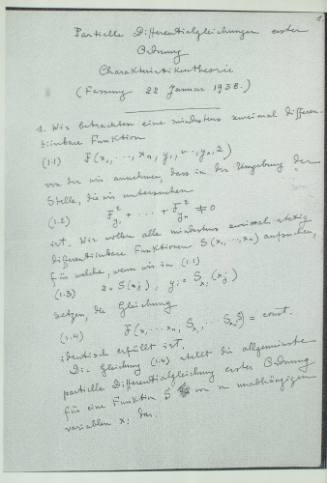 1
Partielle Differentialgleichungen erster
Ordnung
Charakteristikentheorie
(Fassung 22 Januar 1938.)
1. Wir betrachten eine mindestens zweimal differen-
tiierbare Funktion
(1.1) F(x₁, ..., xₙ, y₁, ..., yₙ, z)
von der wir annehmen, dass in der Umgebung der
Stelle, die wir untersuchen
(1.2) F²_y₁ + ... + F²_yₙ ≠ 0
ist. Wir wollen alle mindestens zweimal stetig
differentiierbare Funktionen S(x₁,...,xₙ) aufsuchen,
für welche, wenn wir in (1.1)
(1.3) z = S(xⱼ), yᵢ = S_xᵢ(xⱼ)
setzen, die Gleichung
(1.4) F(x₁ ... xₙ, S_x₁ ... S_xₙ S) = const.
identisch erfüllt ist.
Die Gleichung (1.4) stellt die allgemeinste
partielle Differentialgleichung erster Ordnung
für eine Funktion S von n unabhängigen
Variablen xᵢ dar.